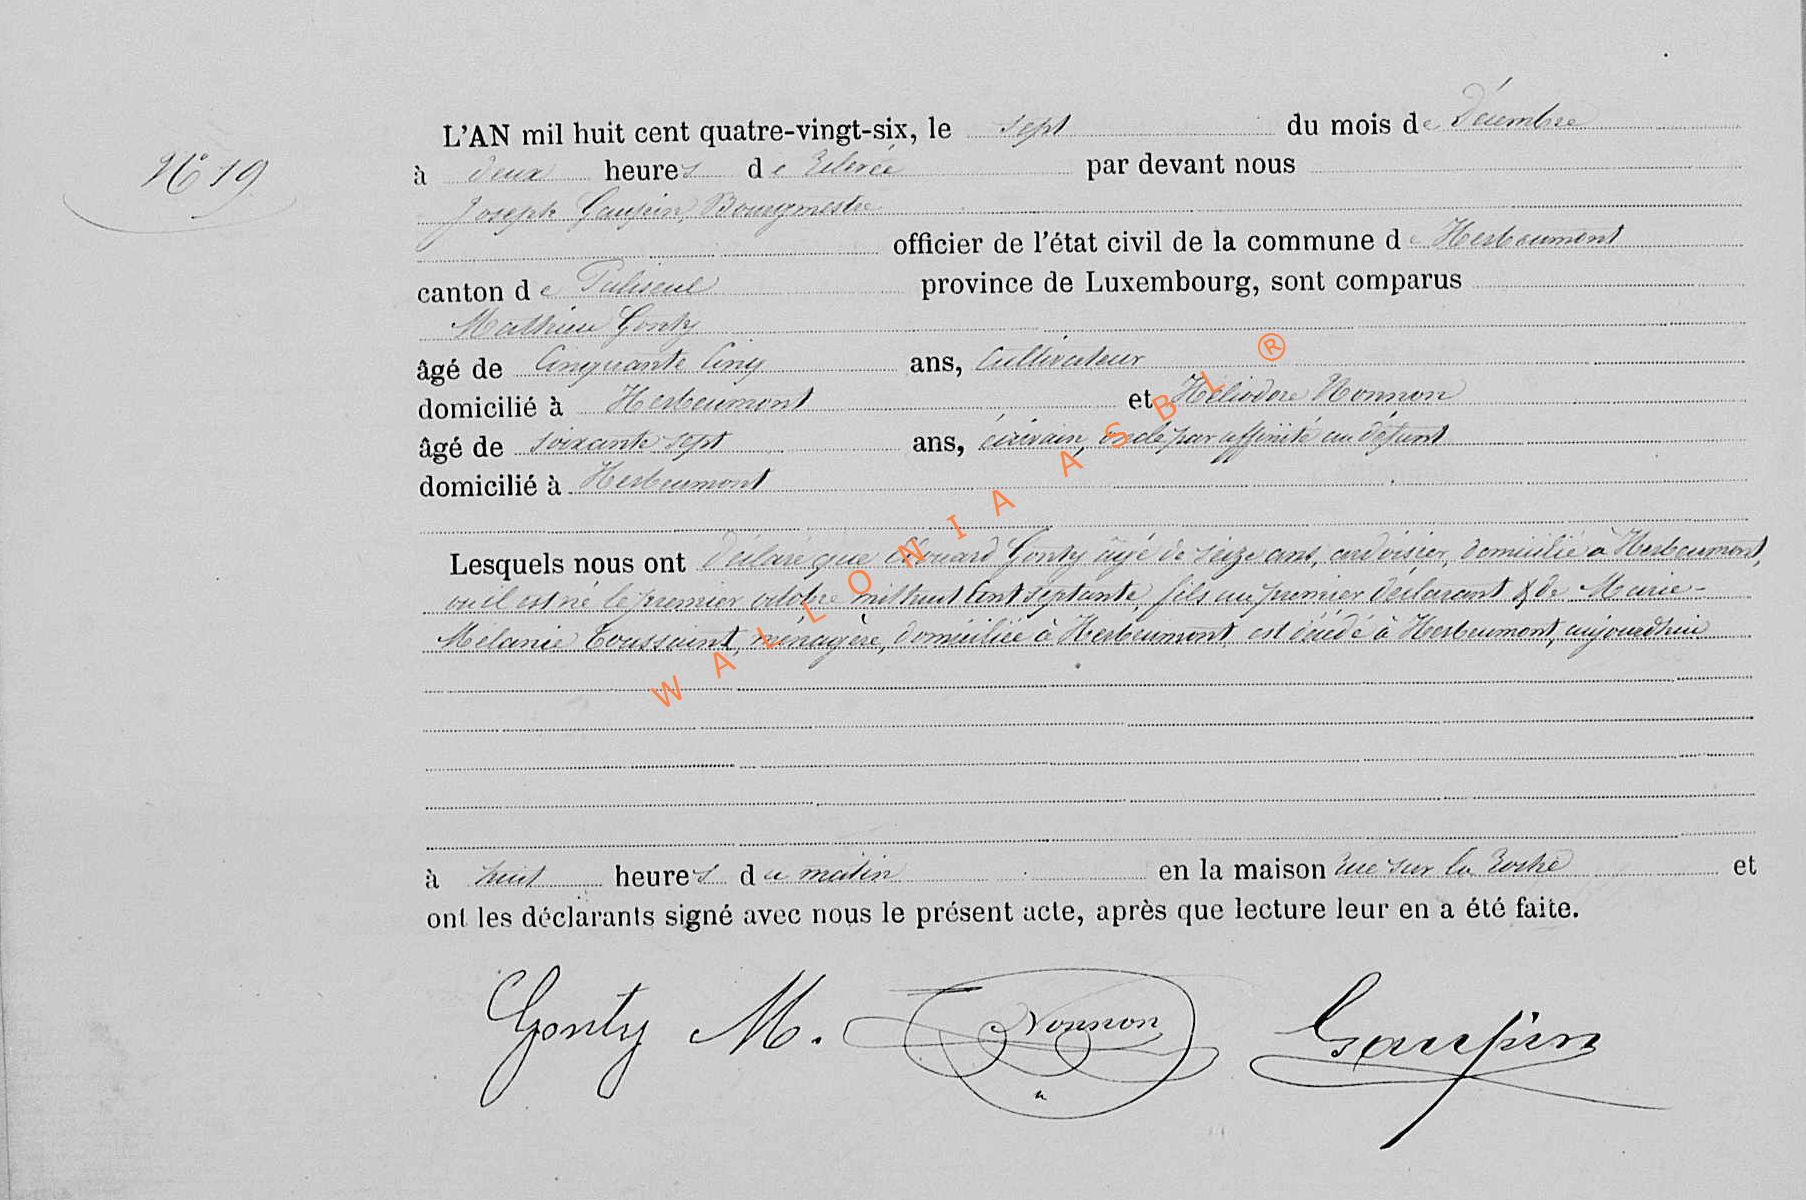 N° 19.
L'AN mil huit cent quatre-vingt-six, le sept du mois de Décembre
à deux heures de relevée par devant nous
Joseph Gaupin, Bourgmestre
officier de l'état civil de la commune de Herbeumont
canton de Paliseul province de Luxembourg, sont comparus
Mathieu Gonty
âgé de Cinquante Cinq ans, Cultivateur
domicilié à Herbeumont et Héliodore Nonnon
âgé de soixante sept ans, écrivain, oncle par affinité au défunt
domicilié à Herbeumont
Lesquels nous ont déclaré que Edouard Gonty âgé de seize ans, ardoisier, domicilié à Herbeumont,
où il est né le premier octobre mil huit Cent septante, fils au premier déclarant & de Marie-
Mélanie Toussaint, ménagère, domiciliée à Herbeumont, est décédé à Herbeumont, aujourdhui
à huit heures du matin en la maison rue sur la Roche et
ont les déclarants signé avec nous le présent acte, après que lecture leur en a été faite.
Gonty M. Nonnon Gaupin
WALLONIA ASBL ®